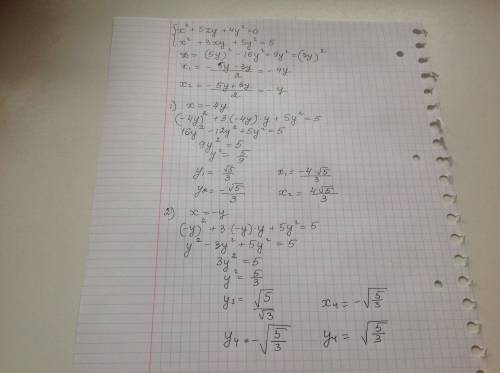 {x² + 5xy + 4y² = 0
{x² + 3xy + 5y² = 5
D = (5y)² - 16y² = 9y² = (3y)²
x₁ = -5y-3y/2 = -4y
x₂ = -5y+3y/2 = -y
1) x = -4y
(-4y)² + 3·(-4y)·y + 5y² = 5
16y² - 12y² + 5y² = 5
9y² = 5
y² = 5/9
y₁ = √5/3 x₁ = -4√5/3
y₂ = -√5/3 x₂ = 4√5/3
2) x = -y
(-y)² + 3·(-y)·y + 5y² = 5
y² - 3y² + 5y² = 5
3y² = 5
y² = 5/3
y₃ = √5/√3 x₄ = -√5/3
y₄ = -√5/3 y₄ = √5/3